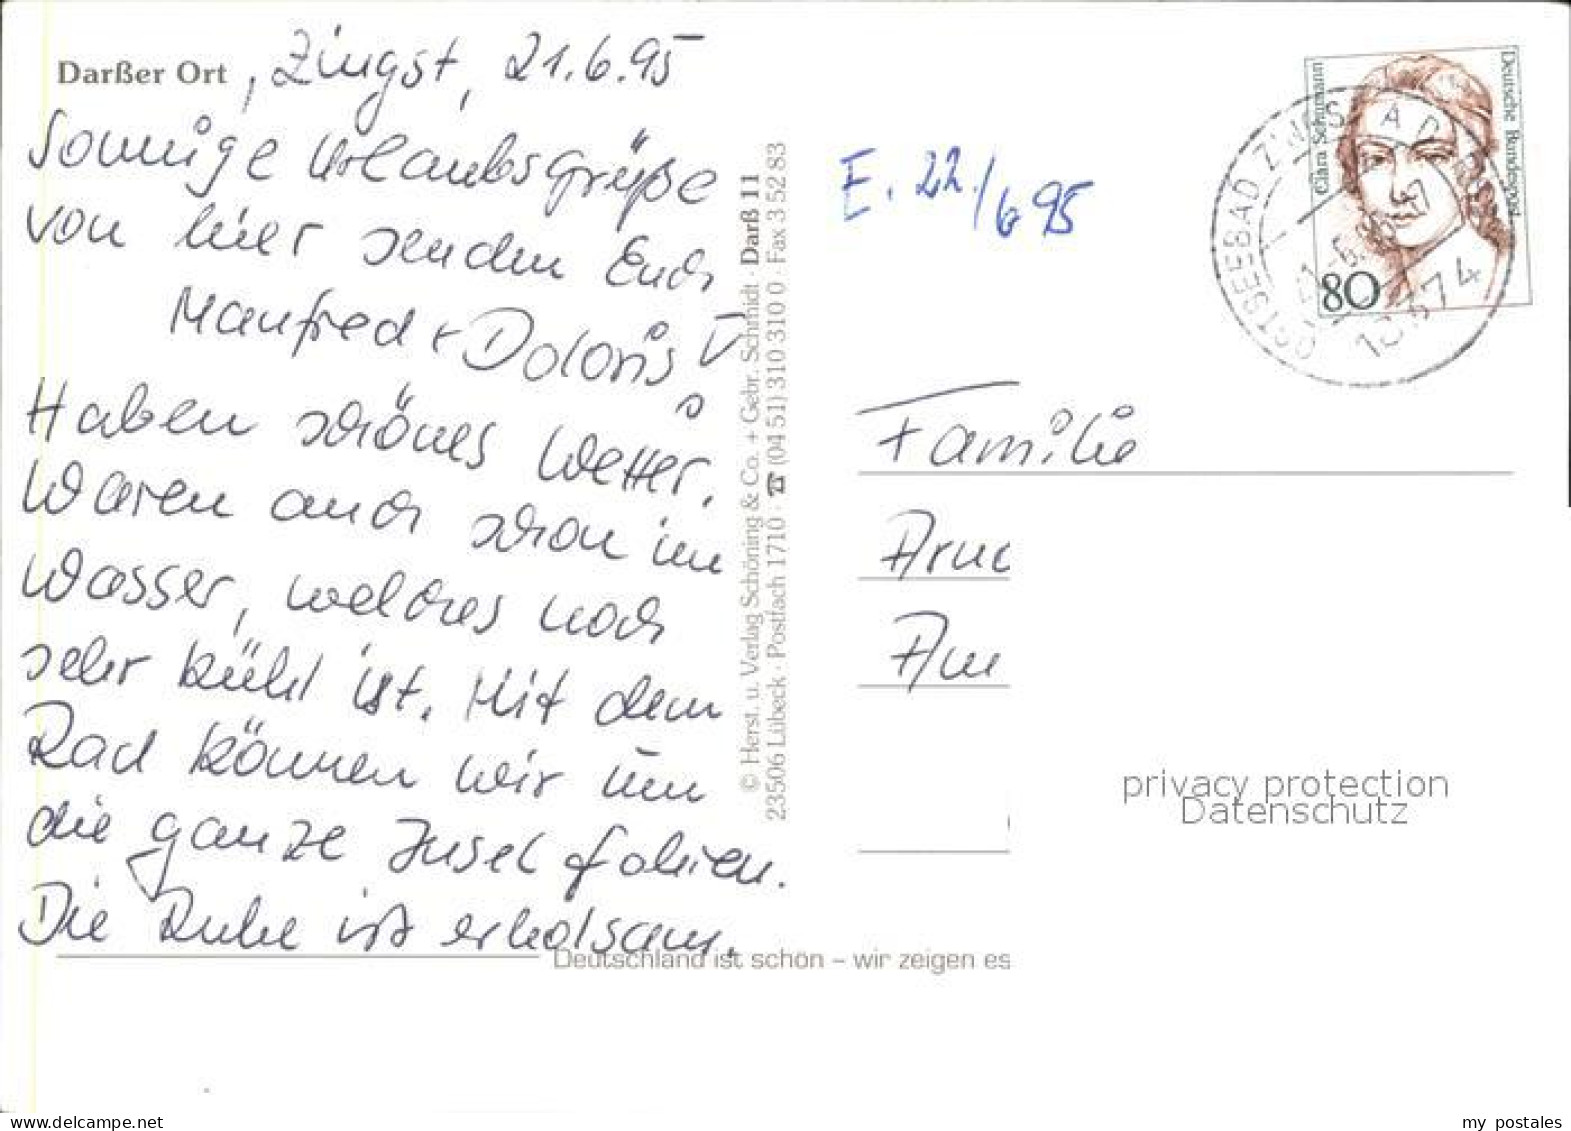 Darßer Ort , Zingst, 21.6.95
Sonnige Urlaubsgrüße
von hier senden Euch
Manfred + Doloris V
Haben schönes Wetter.
Waren auch schon im
Wasser, welches noch
sehr kühl ist. Mit dem
Rad können wir um
die ganze Insel fahren.
Die Ruhe ist erholsam.
© Herst. u. Verlag Schöning & Co. + Gebr. Schmidt · Darß 11
23506 Lübeck · Postfach 1710 · ☎ (04 51) 310 310 0 · Fax 3 52 83
E. 22./6 95
Clara Schumann
Deutsche Bundespost
80
OSTSEEBAD ZINGST A D
18374
Familie
privacy protection
Datenschutz
Deutschland ist schön – wir zeigen es
www.delcampe.net
my_postales